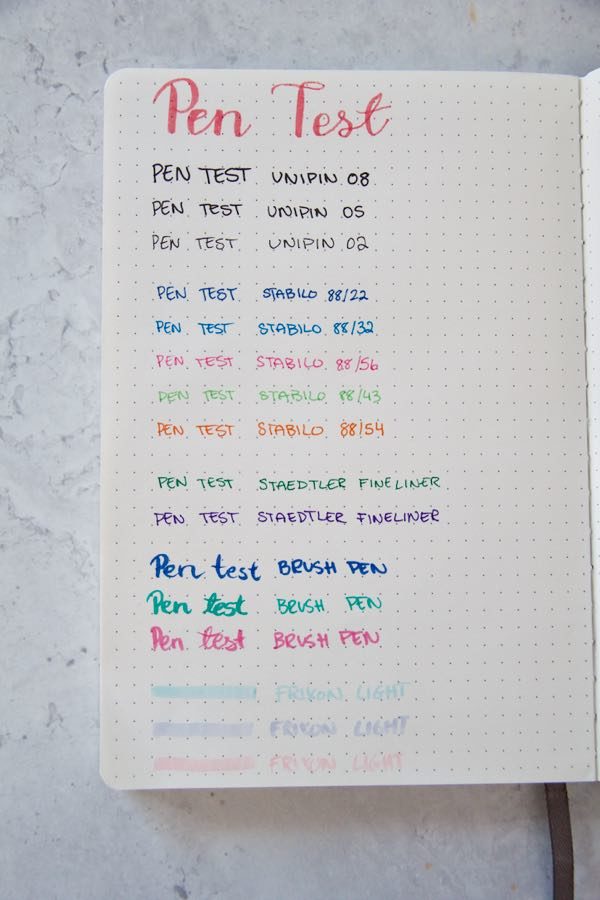 Pen Test
PEN TEST UNIPIN 08
PEN TEST UNIPIN 05
PEN TEST UNIPIN 02
PEN TEST STABILO 88/22
PEN TEST STABILO 88/32
PEN TEST STABILO 88/56
PEN TEST STABILO 88/43
PEN TEST STABILO 88/54
PEN TEST STAEDTLER FINELINER
PEN TEST STAEDTLER FINELINER
Pen test BRUSH PEN
Pen test BRUSH PEN
Pen test BRUSH PEN
FRIXON LIGHT
FRIXON LIGHT
FRIXON LIGHT